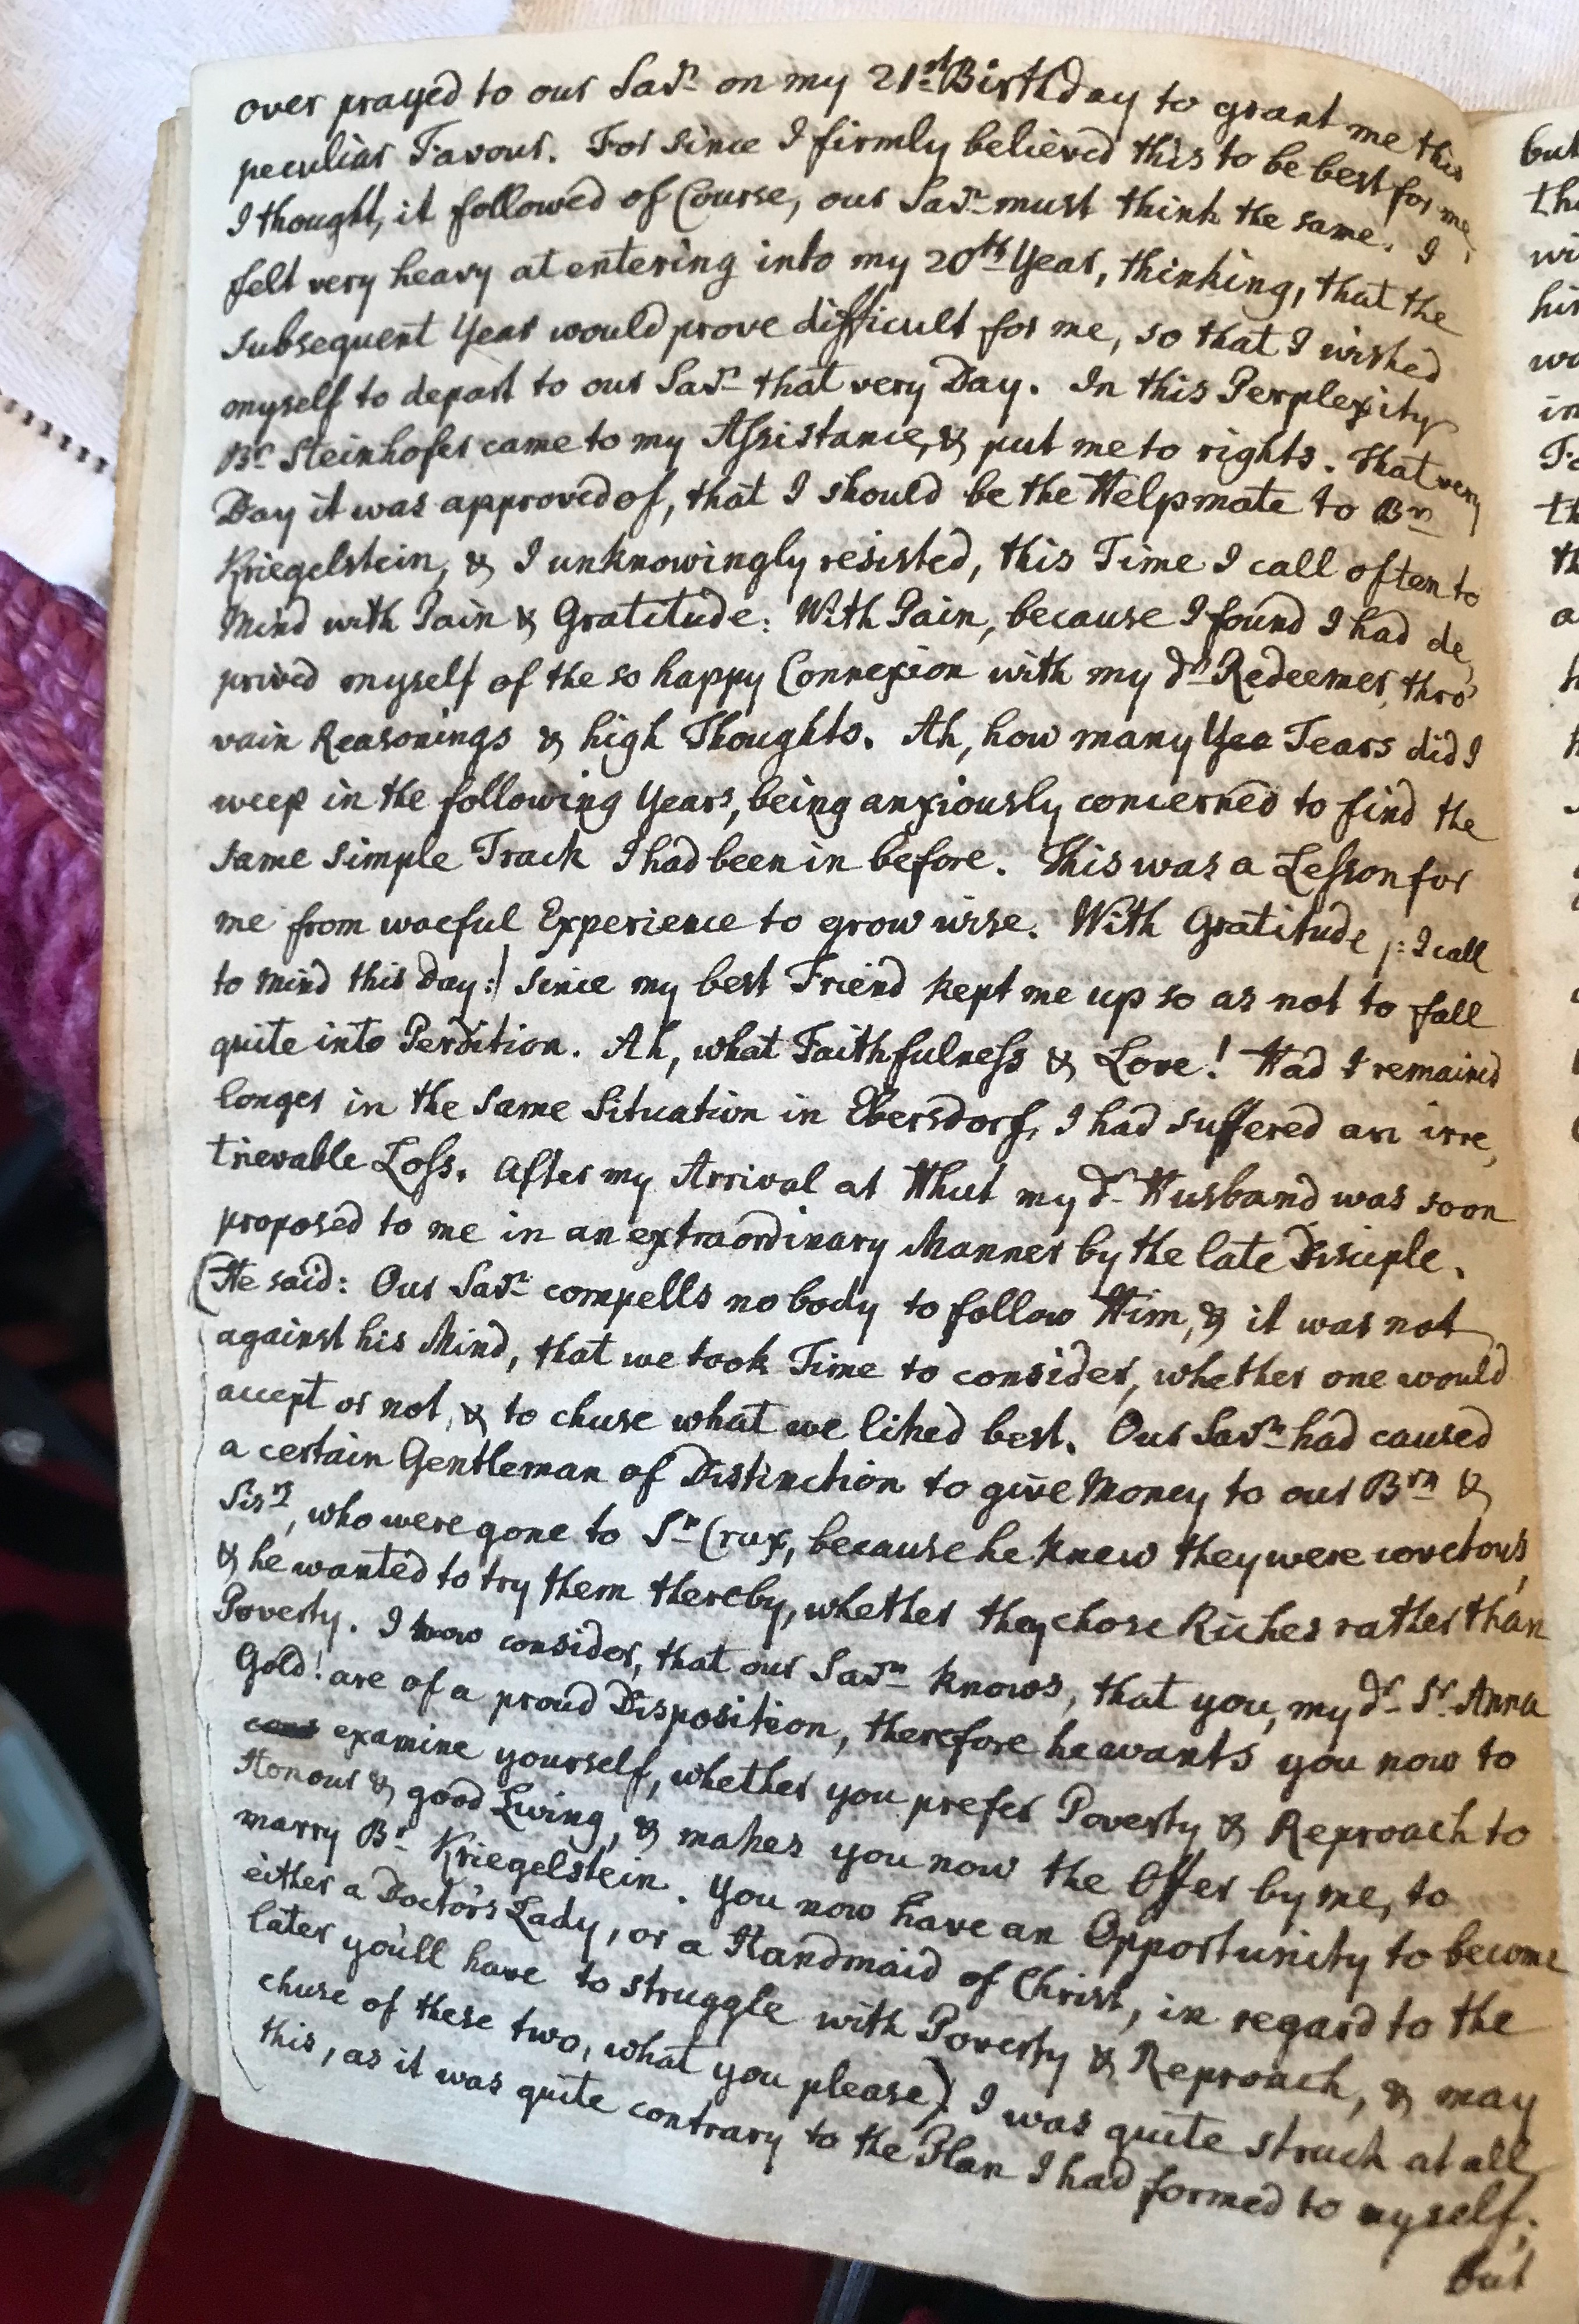 over prayed to our Savr. on my 21st. Birthday to grant me this
peculiar Favour. For since I firmly believed this to be best for me,
I thought, it followed of Course, our Savr. must think the same. I
felt very heavy at entering into my 20th. Year, thinking, that the
subsequent Year would prove difficult for me, so that I wished
myself to depart to our Savr. that very Day. In this Perplexity
Br. Steinhofer came to my Assistance, & put me to rights. That very
Day it was approved of, that I should be the Helpmate to Brn.
Kriegelstein, & I unknowingly resisted, this Time I call often to
Mind with Pain & Gratitude: With Pain, because I found I had de,
prived myself of the so happy Connexion with my dr. Redeemer, thro'
vain Reasonings & high Thoughts. Ah, how many Yea Tears did I
weep in the following Years, being anxiously concerned to find the
same simple Track I had been in before. This was a Lesson for
me from woeful Experience to grow wise. With Gratitude /: I call
to Mind this Day :/ since my best Friend kept me up so as not to fall
quite into Perdition. Ah, what Faithfulness & Love! Had I remained
longer in the same Situation in Ebersdorf, I had suffered an irre,
trievable Loss. After my Arrival at Hhut my dr. Husband was soon
proposed to me in an extraordinary Manner by the late Disciple.
(He said: Our Savr. compells nobody to follow Him, & it was not
against his Mind, that we took Time to consider, whether one would
accept or not, & to chuse what we liked best. Our Savr. had caused
a certain Gentleman of Distinction to give Money to our Brn. &
Sisrs, who were gone to St. Crux, because he knew they were covetous,
& he wanted to try them thereby, whether they chose Riches rather than
Poverty. I now consider, that our Savr. knows, that you, my dr. Sr. Anna
Gold! are of a proud Disposition, therefore he wants you now to
examine yourself, whether you prefer Poverty & Reproach to
Honour & good Living, & makes you now the Offer by me, to
marry Br. Kriegelstein. You now have an Opportunity to become
either a Doctor's Lady, or a Handmaid of Christ, in regard to the
later you'll have to struggle with Poverty & Reproach, & may
chuse of these two, what you please). I was quite struck at all
this, as it was quite contrary to the Plan I had formed to myself;
But